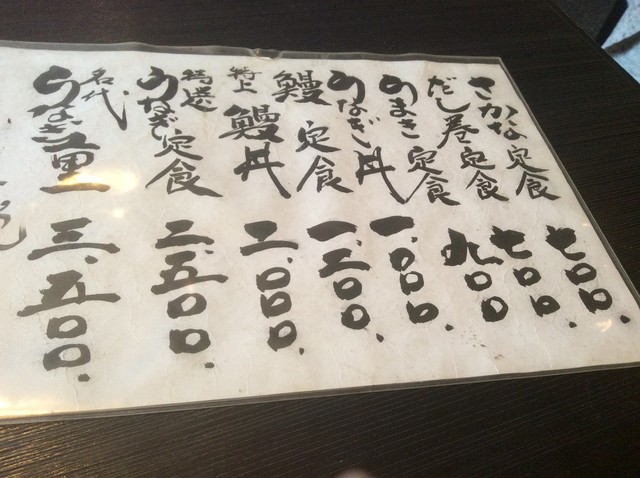 さかな定食 七〇〇.
だし巻定食 七〇〇.
うまき定食 九〇〇.
うなぎ丼 一、〇〇〇.
鰻定食 一、二〇〇.
特上 鰻丼 二、〇〇〇.
特選 うなぎ定食 二、五〇〇.
名代 うなぎ重 三、五〇〇.